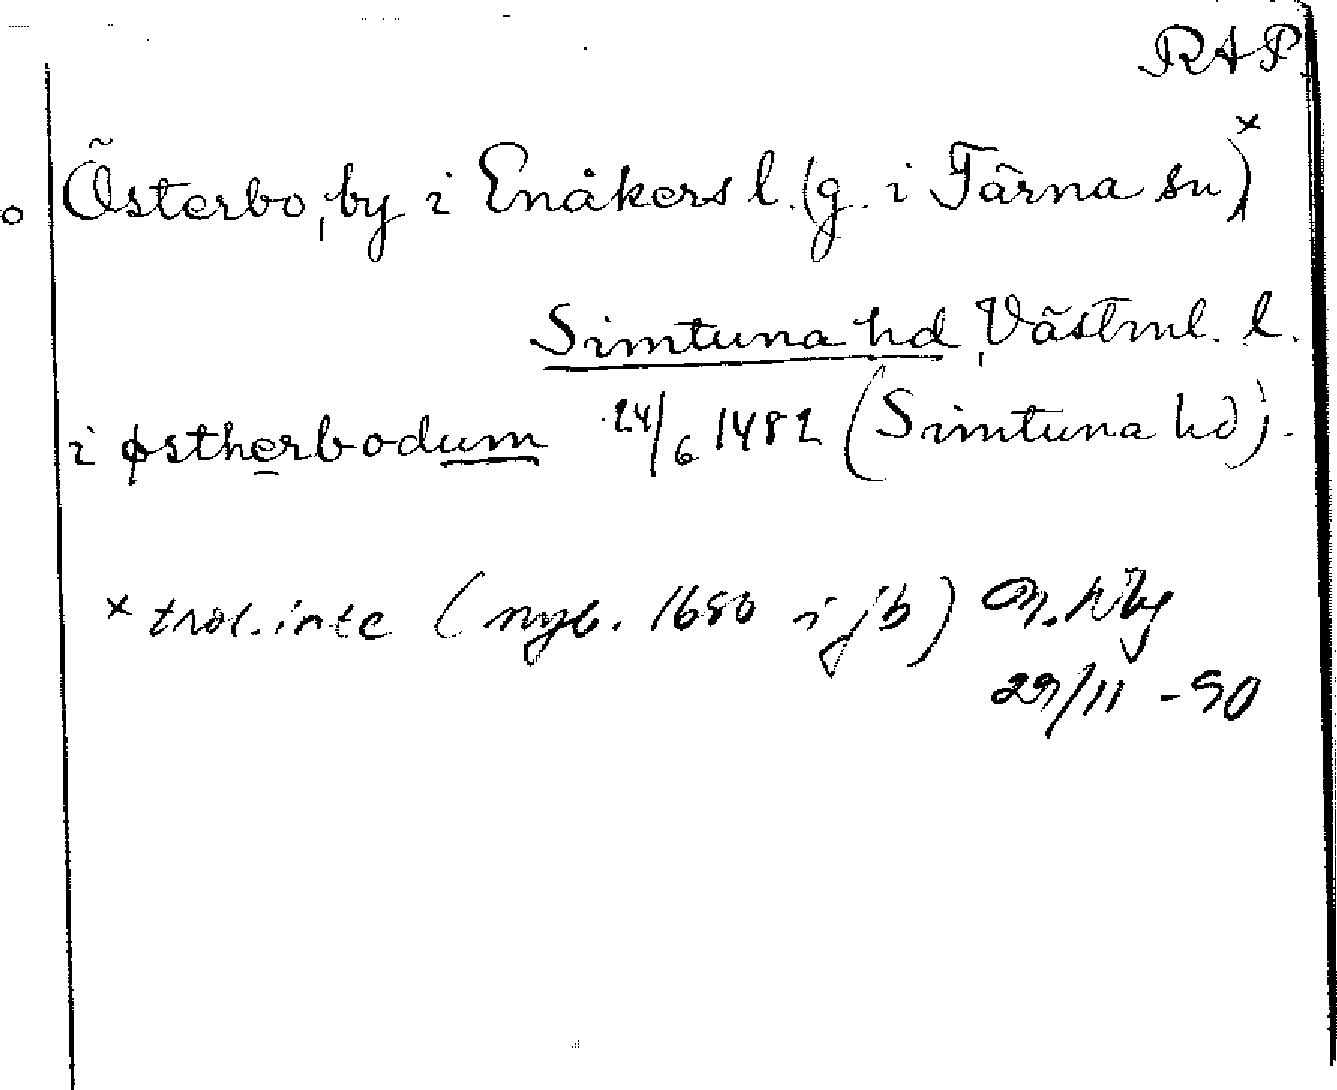 RAP
o Österbo, by i Enåkers l. (g. i Tärna sn)ˣ
Simtuna hd, Västml. l.
i østherbodum 24/6 1482 (Simtuna hd).
x trol. inte (nyb. 1680 i jb)
29/11 -90